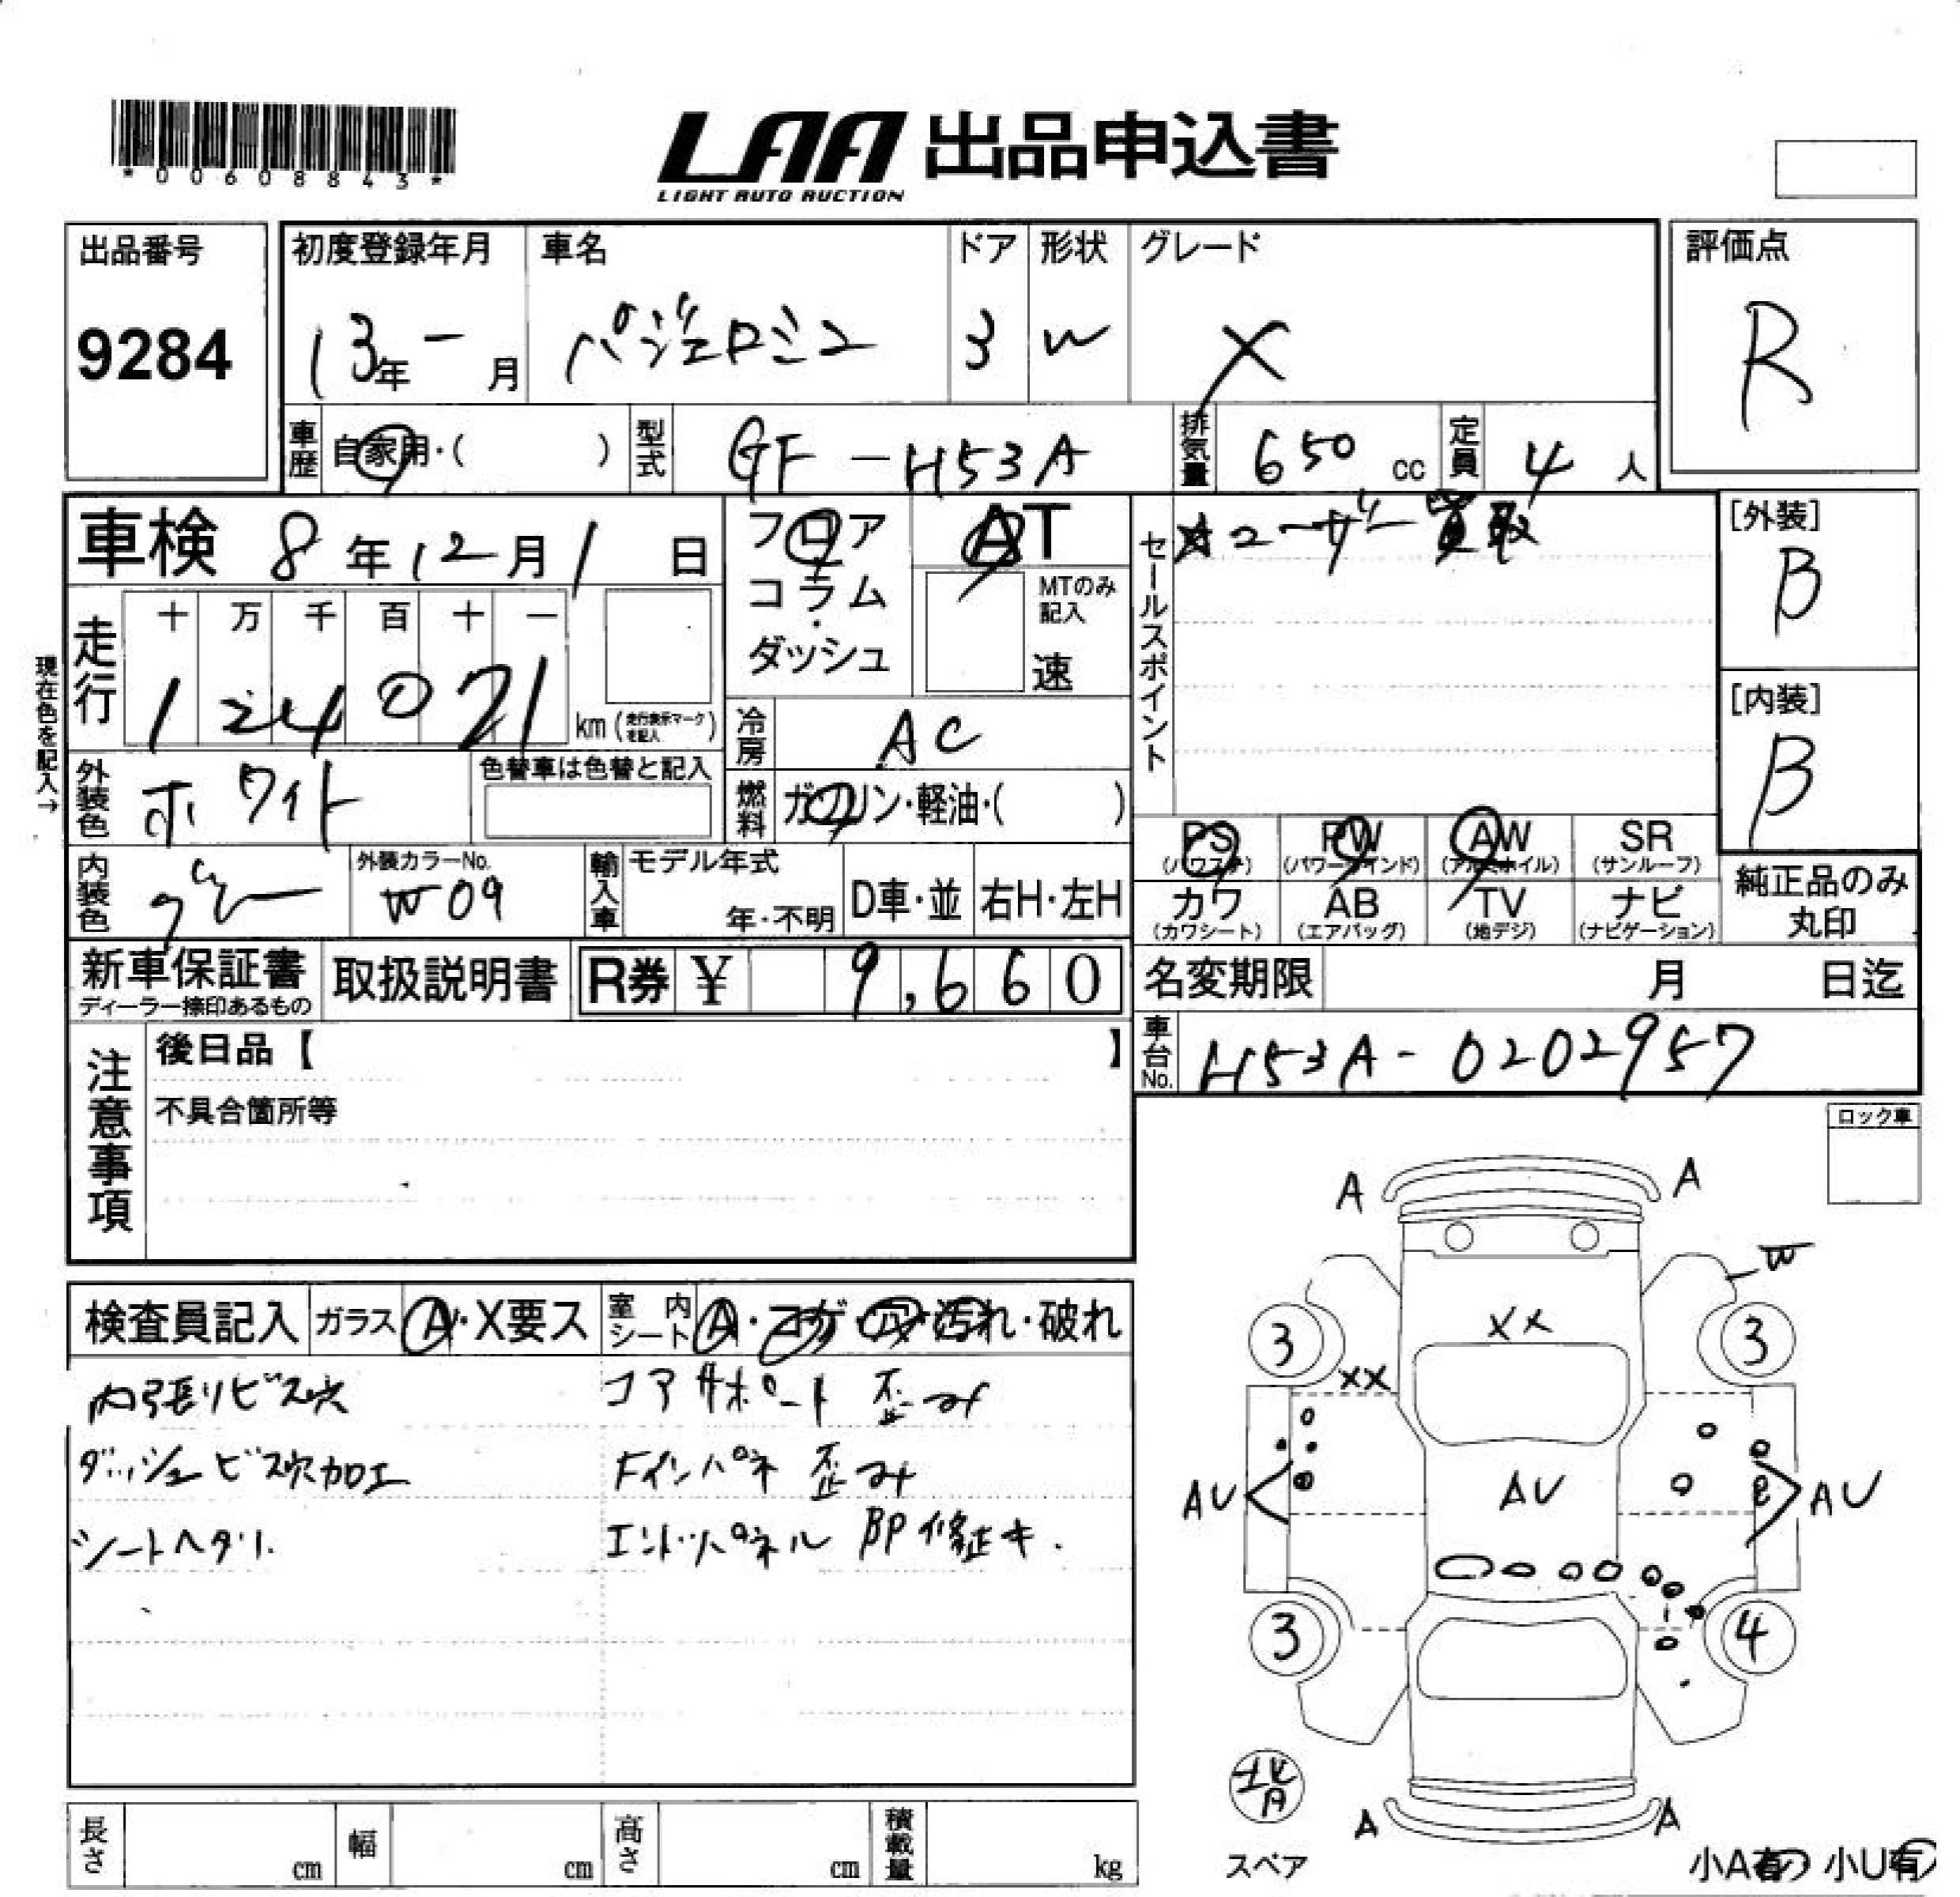 *00608843*
LAA 出品申込書
LIGHT AUTO AUCTION
出品番号
9284
初度登録年月 車名 ドア 形状 グレード
13年 - 月 パジェロミニ 3 W X
評価点
R
車歴 自家用・( ) 型式 GF-H53A 排気量 650 cc 定員 4 人
車検 8年12月1日
フロア
コラム・
ダッシュ
AT
MTのみ記入
速
セールスポイント
★ユーザー買取
[外装]
B
[内装]
B
現在色を記入→
走行 十 万 千 百 十 一
124071 km (走行表示マークを記入)
冷房 AC
外装色 ホワイト 色替車は色替と記入
燃料 ガソリン・軽油・( )
PS (パワステ) PW (パワーウインド) AW (アルミホイル) SR (サンルーフ)
カワ (カワシート) AB (エアバッグ) TV (地デジ) ナビ (ナビゲーション)
純正品のみ
丸印
内装色 グレー 外装カラーNo. W09
輸入車 モデル年式 年・不明 D車・並 右H・左H
新車保証書 ディーラー捺印あるもの 取扱説明書 R券 ¥ 9,660
名変期限 月 日迄
車台No. H53A-0202957
注意事項
後日品【 】
不具合箇所等
ロック車
検査員記入 ガラス A・X要ス 室内シート A・コゲ・穴・汚れ・破れ
内張りビス穴 コアサポート 歪み
ダッシュビス穴加工 Fインパネ 歪み
シートヘタリ エンドパネル BP修正キ.
A A
W
XX
3 3
XX
AU AU AU
3 4
A A
スペア
小A有 小U有
長さ cm 幅 cm 高さ cm 積載量 kg